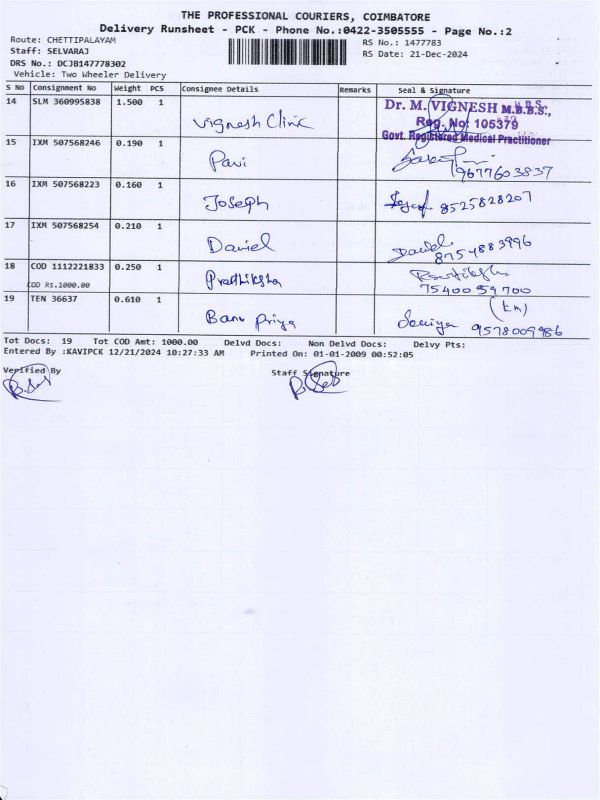 THE PROFESSIONAL COURIERS, COIMBATORE
Delivery Runsheet - PCK - Phone No.:0422-3505555 - Page No.:2
Route: CHETTIPALAYAM
RS No.: 1477783
Staff: SELVARAJ
RS Date: 21-Dec-2024
DRS No.: DCJB147778302
Vehicle: Two Wheeler Delivery
S No Consignment No Weight PCS Consignee Details Remarks Seal & Signature
14 SLM 360995838 1.500 1 Vignesh Clinic
Dr. M. VIGNESH M.B.B.S.,
Reg. No: 105379
Govt. Registered Medical Practitioner
15 IXM 507568246 0.190 1 Pavi
9677603837
16 IXM 507568223 0.160 1 Joseph 8525828207
17 IXM 507568254 0.210 1 Daniel
8754883996
18 COD 1112221833 0.250 1 Prathiksha
COD Rs.1000.00 75400 59700
19 TEN 36637 0.610 1 Banu Priya 9578009986
Tot Docs: 19 Tot COD Amt: 1000.00 Delvd Docs: Non Delvd Docs: Delvy Pts:
Entered By :KAVIPCK 12/21/2024 10:27:33 AM Printed On: 01-01-2009 00:52:05
Verified By Staff Signature